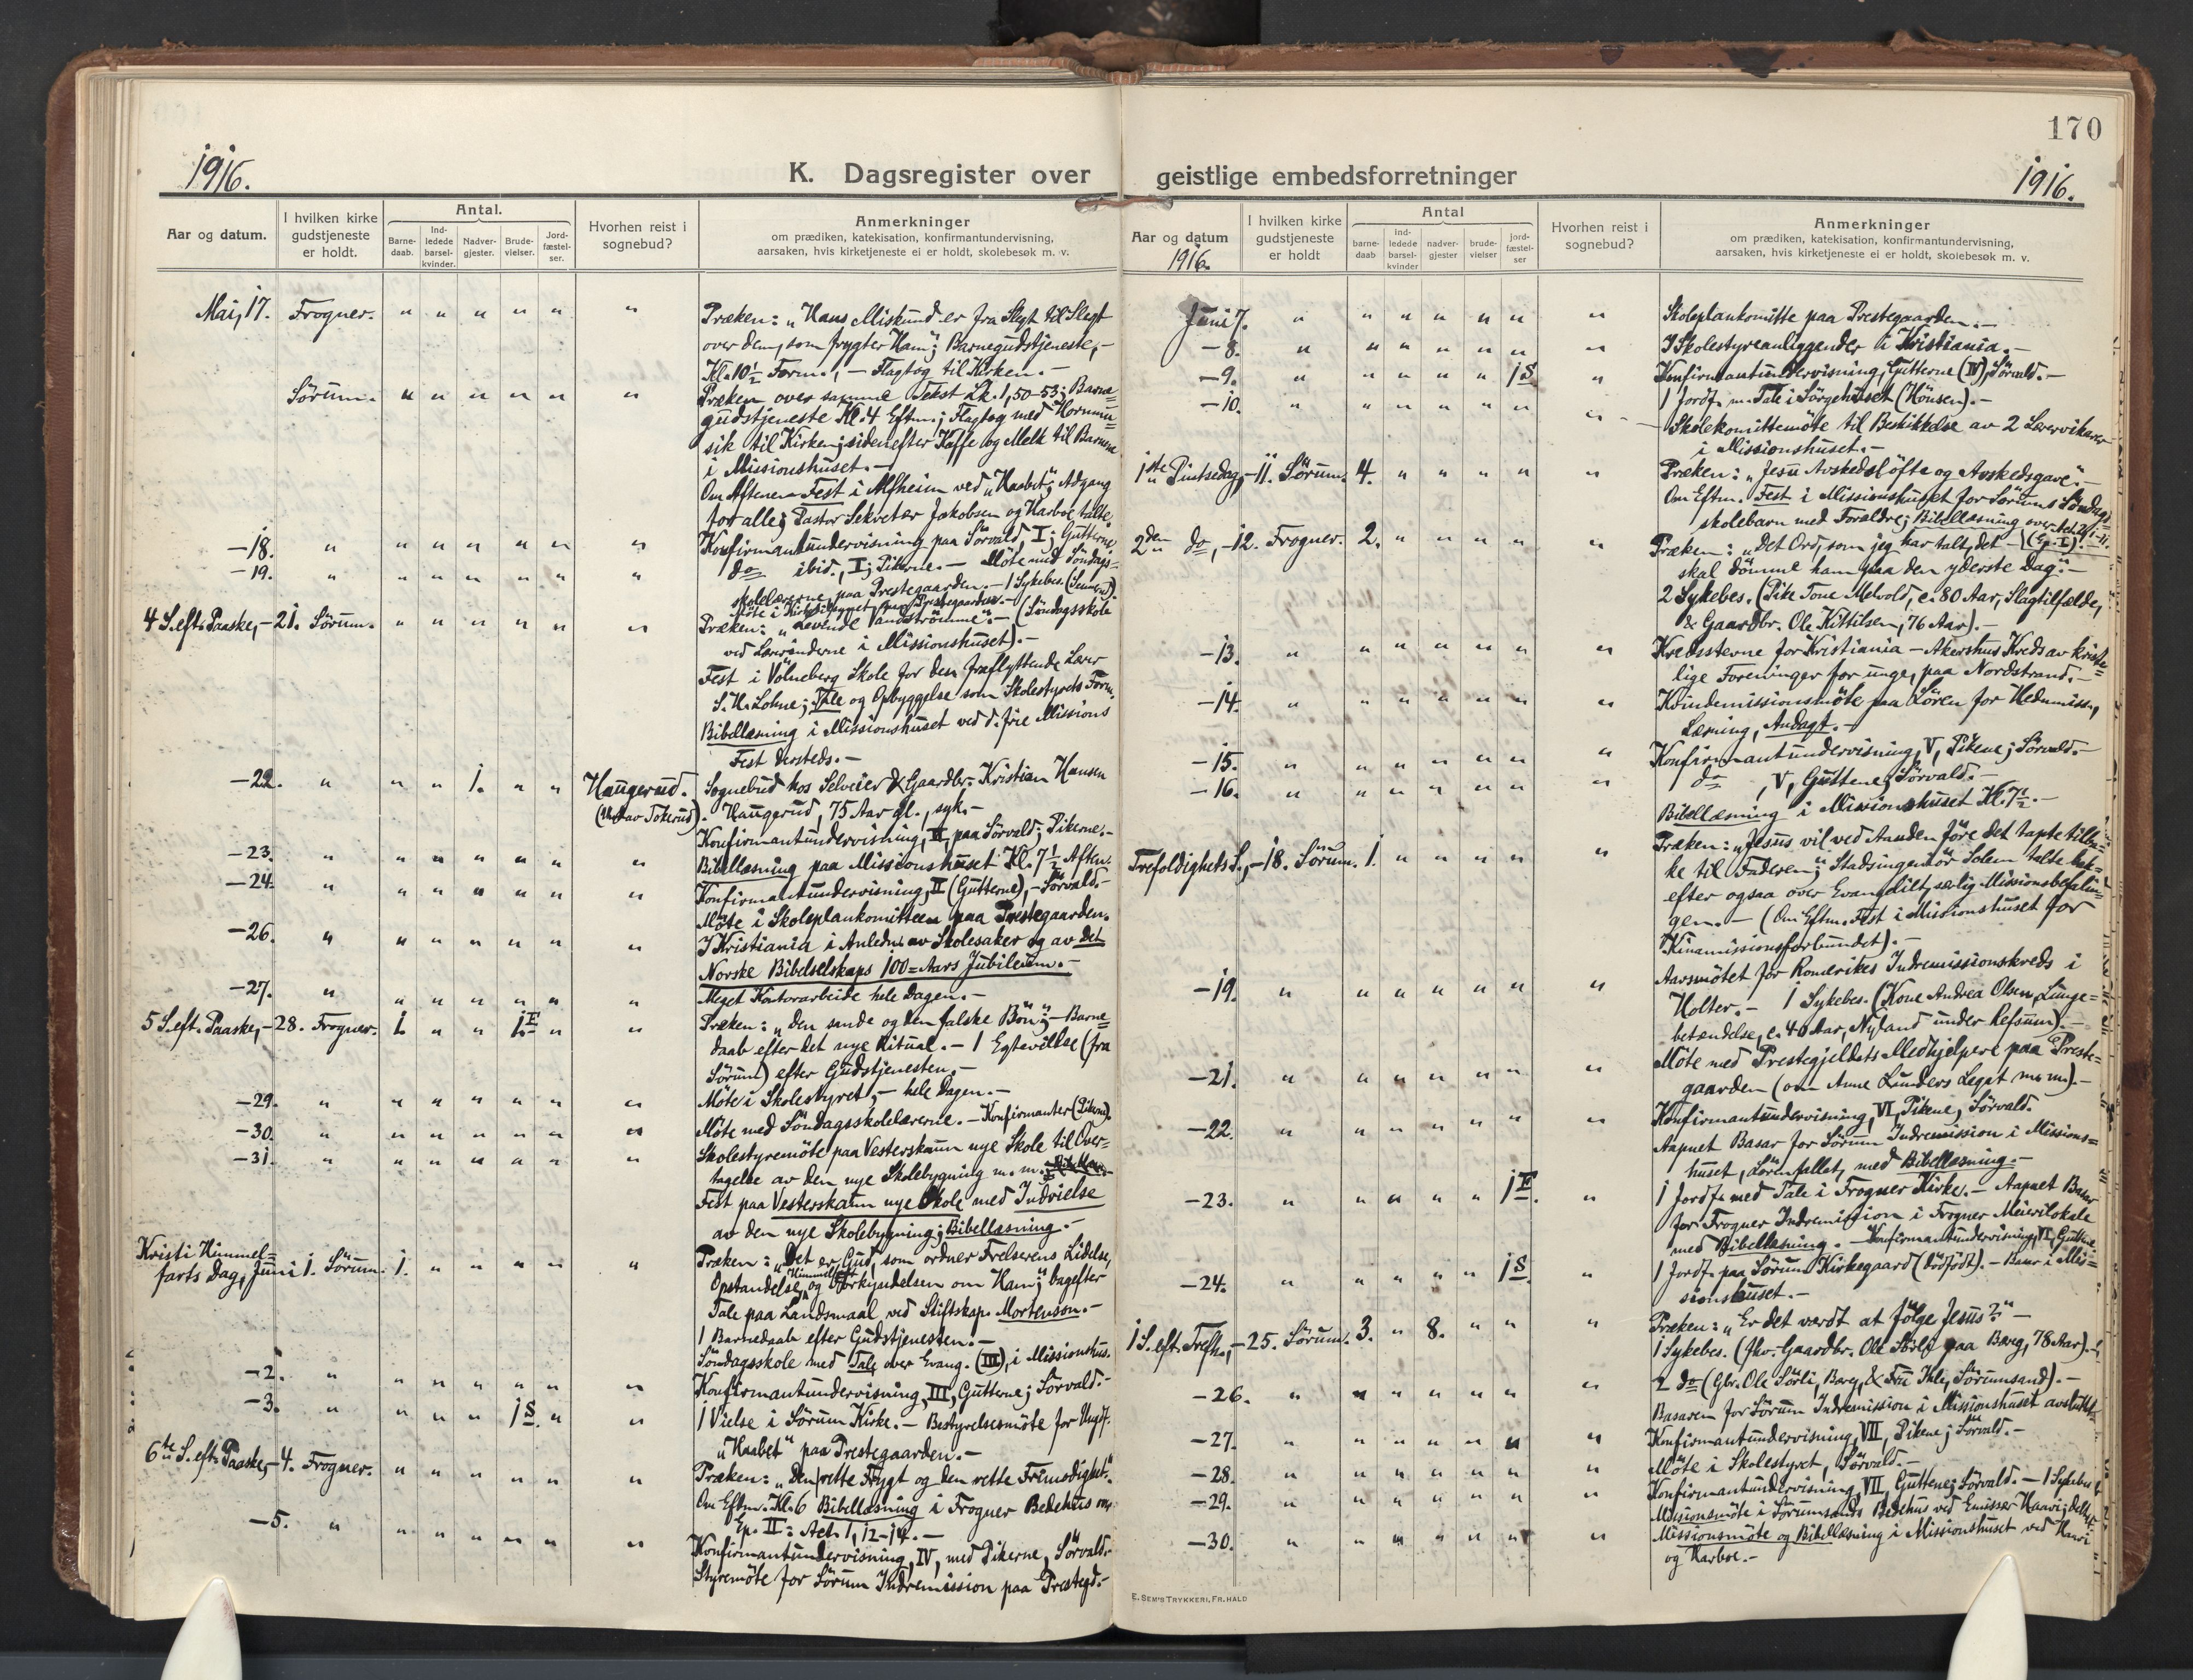 1916.
K. Dagsregister over
Aar og datum.
I hvilken kirke gudstjeneste er holdt.
Antal.
Barne-daab.
Ind-ledede barsel-kvinder.
Nadver-gjester.
Brude-vielser.
Jord-fæstel-ser.
Hvorhen reist i sognebud?
Anmerkninger
om prædiken, katekisation, konfirmantundervisning,
aarsaken, hvis kirketjeneste ei er holdt, skolebesøk m. v.
Mai, 17. Frogner. " " " " " " Præken: „Hans Miskund er fra Slegt til Slegt
over dem, som frygter Ham"; Barnegudstjeneste, –
Kl. 10½ Form., – Flagtog til Kirken. –
Sörum. " " " " " " Præken over samme Tekst Lk. 1, 50–53; Barne=
gudstjeneste Kl. 4 Eftm.; Flagtog med Hornmu=
sik til Kirken; siden efter Kaffe og Melk til Barnene
i Missionshuset. –
Om Aftenen Fest i Alfheim ved „Haabet"; Adgang
for alle; Pastor Sekretær Jakobsen og Harboe talte.
–18. " " " " " " " Konfirmantundervisning paa Sörvald, I; Gutterne.
–19. " " " " " " " do ibid., I; Pikerne. – Möte med Söndags=
skolelærerne paa Prestegaarden. – 1 Sykebes.
4 S. eft. Paaske, –21. Sörum. " " " " " " Præken: „Levende Vandströmme". – (Söndagsskole
ved Lærerinderne i Missionshuset). –
Fest i Völneberg Skole for den fraflyttende Lærer
S. H. Lohne; Tale og Opbyggelse som Skolestyrets Form.
Bibellæsning i Missionshuset ved d. frie Missions
Fest dersteds. –
–22. " " " 1. " " Haugerud. Sognebud hos Selveier & Gaardbr. Kristian Hansen
Haugerud, 75 Aar gl., syk. –
Konfirmantundervisning, II, paa Sörvald; Pikerne. –
–23. " " " " " " " Bibellæsning paa Missionshuset Kl. 7½ Aften.
–24. " " " " " " " Konfirmantundervisning, II (Gutterne), – Sörvald. –
Möte i Skoleplankomitteen paa Prestegaarden.
–26. " " " " " " " I Kristiania i Anledn. av Skolesaker og av det
Norske Bibelselskaps 100=Aars Jubileum. –
–27. " " " " " " " Meget Kontorarbeide hele Dagen. –
5 S. eft. Paaske, –28. Frogner. 1. " " 1F. " " Præken: „Den sande og den falske Bön"; – Barne=
daab efter det nye Ritual. – 1 Egtevielse (fra
Sörum) efter Gudstjenesten. –
–29. " " " " " " " Möte i Skolestyret, – hele Dagen. –
–30. " " " " " " " Möte med Söndagsskolelærerne. – Konfirmanter (Pikene).
–31. " " " " " " " Skolestyremöte paa Vesterskaun nye Skole til Over=
tagelse av den nye Skolebygning m. m.
Fest paa Vesterskaun nye Skole med Indvielse
av den nye Skolebygning; Bibellæsning. –
Kristi Himmel=
farts Dag, Juni 1. Sörum. 1. " " " " " Præken: „Det er Gud, som ordner Frelserens Lidelse,
Opstandelse, Himmelf. og Forkyndelsen om Ham"; bagefter
Tale paa Landsmaal ved Stiftskap. Mortenson. –
1 Barnedaab efter Gudstjenesten. –
Söndagsskole med Tale over Evang. (III), i Missionshus.
–2. " " " " " " " Konfirmantundervisning, III, Gutterne; Sörvald. –
–3. " " " " 1S. " " 1 Vielse i Sörum Kirke. – Bestyrelsesmöte for Ungdf.
„Haabet" paa Prestegaarden. –
6te S. eft. Paaske, –4. Frogner. " " " " " " Præken: „Den rette Frygt og den rette Frimodighet".
Om Eftm. Kl. 6 Bibellæsning i Frogner Bedehus over
Ep. II: Act. 1, 12–14. –
–5. " " " " " " " Konfirmantundervisning, IV, med Pikerne, Sörvald.
Styremöte for Sörum Indremission paa Prestegd. –
170
geistlige embedsforretninger
1916.
Aar og datum
1916.
I hvilken kirke gudstjeneste er holdt
Antal
barne-daab
ind-ledede barsel-kvinder
nadver-gjester
brude-vielser
jord-fæstel-ser
Hvorhen reist i sognebud?
Anmerkninger
om prædiken, katekisation, konfirmantundervisning,
aarsaken, hvis kirketjeneste ei er holdt, skolebesøk m. v.
Juni 7. " " " " " " " Skoleplankomitte paa Prestegaarden. –
–8. " " " " " " " I Skolestyreanliggender i Kristiania. –
–9. " " " " " 1S " Konfirmantundervisning, Gutterne (IV), Sörvald. –
1 Jordf. m. Tale i Sörgehuset. –
–10. " " " " " " " Skolekomittemöte til Beskikkelse av 2 Lærervikarer
i Missionshuset. –
1ste Pintsedag, –11. Sörum. 4. " " " " " Præken: „Jesu Avskedslöfte og Avskedsgave". –
Om Eftm. Fest i Missionshuset for Sörums Söndags=
skolebarn med Forældre; Bibellæsning over
(Ep. I). –
2den do, –12. Frogner. 2. " " " " " Præken: „Det Ord, som jeg har talt, det –
skal dömme ham paa den yderste Dag". –
2 Sykebes. (Pike Tone Melvold, c. 80 Aar, Slagtilfælde,
& Gaardbr. Ole Kittilsen, 76 Aar). –
–13. " " " " " " " Kredsstevne for Kristiania – Akershus Kreds av kriste=
lige Foreninger for unge, paa Nordstrand. –
–14. " " " " " " " Kvindemissionsmöte paa Lören for Hedenmiss.,
Læsning, Andagt. –
–15. " " " " " " " Konfirmantundervisning, V, Pikene; Sörvald. –
–16. " " " " " " " do, V, Guttene, Sörvald. –
Bibellæsning i Missionshuset Kl. 7½. –
Trefoldighets S., –18. Sörum. 1. " " " " " Præken: „Jesus vil ved Aanden före det tapte tilba=
ke til Faderen"; Stadsingeniör Solem talte bak=
efter ogsaa over Evangeliet, særlig Missionsbefalin=
gen. – (Om Eftm. Fest i Missionshuset for
Kinamissionsforbundet). –
–19. " " " " " " " Aarsmötet for Romerikes Indremissionskreds i
Holter. – 1 Sykebes. (Kone Andrea Olsen, Lunge=
betændelse, c. 40 Aar, Nyland under Refsum). –
–21. " " " " " " " Möte med Prestegjeldets Medhjelpere paa Preste=
gaarden (om Anne Lunders Legat m. m.). –
–22. " " " " " " " Konfirmantundervisning, VI, Pikene, Sörvald.
Aapnet Basar for Sörum Indremission i Missions=
huset, Sörenfallet, med Bibellæsning. –
–23. " " " " " 1F. " 1 Jordf. med Tale i Frogner Kirke. – Aapnet Basar
for Frogner Indremission i Frogner Meierilokale
med Bibellæsning. – Konfirmantundervisning, VI, Guttene.
–24. " " " " " 1S. " 1 Jordf. paa Sörum Kirkegaard (Dödfödt). – Basar i Mis=
sionshuset. –
1 S. eft. Trefh., –25. Sörum. 3. " 8. " " " Præken: „Er det værdt at fölge Jesus?" –
1 Sykebes. (fhv. Gaardbr. Ole Sörli paa Berg, 78 Aar). –
–26. " " " " " " " 2 do (Gbr. Ole Sörli, Berg, & Fru Ihle, Sörumsand). –
Basaren for Sörum Indremission i Missionshuset avsluttet.
–27. " " " " " " " Konfirmantundervisning, VII, Pikene; Sörvald. –
–28. " " " " " " " Möte i Skolestyret, Sörvald. –
–29. " " " " " " " Konfirmantundervisning, VII, Guttene; Sörvald. – 1 Sykebes.
Missionsmöte i Sörumsands Bedehus ved Emissær Haavi;
–30. " " " " " " " Missionsmöte og Bibellæsning i Missionshuset ved Haavi
og Harboe. –
E. SEM'S TRYKKERI, FR.HALD